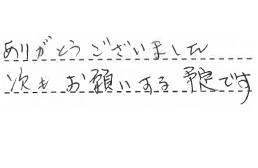 ありがとうございました
次もお願いする予定です